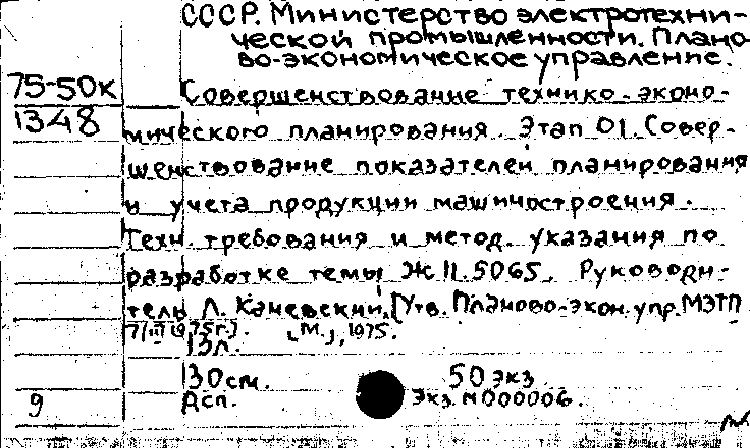 СССР. Министерство электротехни-
ческой промышленности. Плано
во-экономическое управление.
75-50к
Совершенствование технико-эконо-
1348
мического планирования. Этап 01. Совер-
шенствование показателей планирования
и учета продукции машиностроения.
Техн. требования и метод. указания по
разработке темы Ж 11.5065. Руководи-
тель Л. Каневский. [Утв. Планово-экон. упр. МЭТП
7/III 1975г.]. [М.], 1975.
13л.
30см. 50 экз
9 Дсп. Экз. N000006.